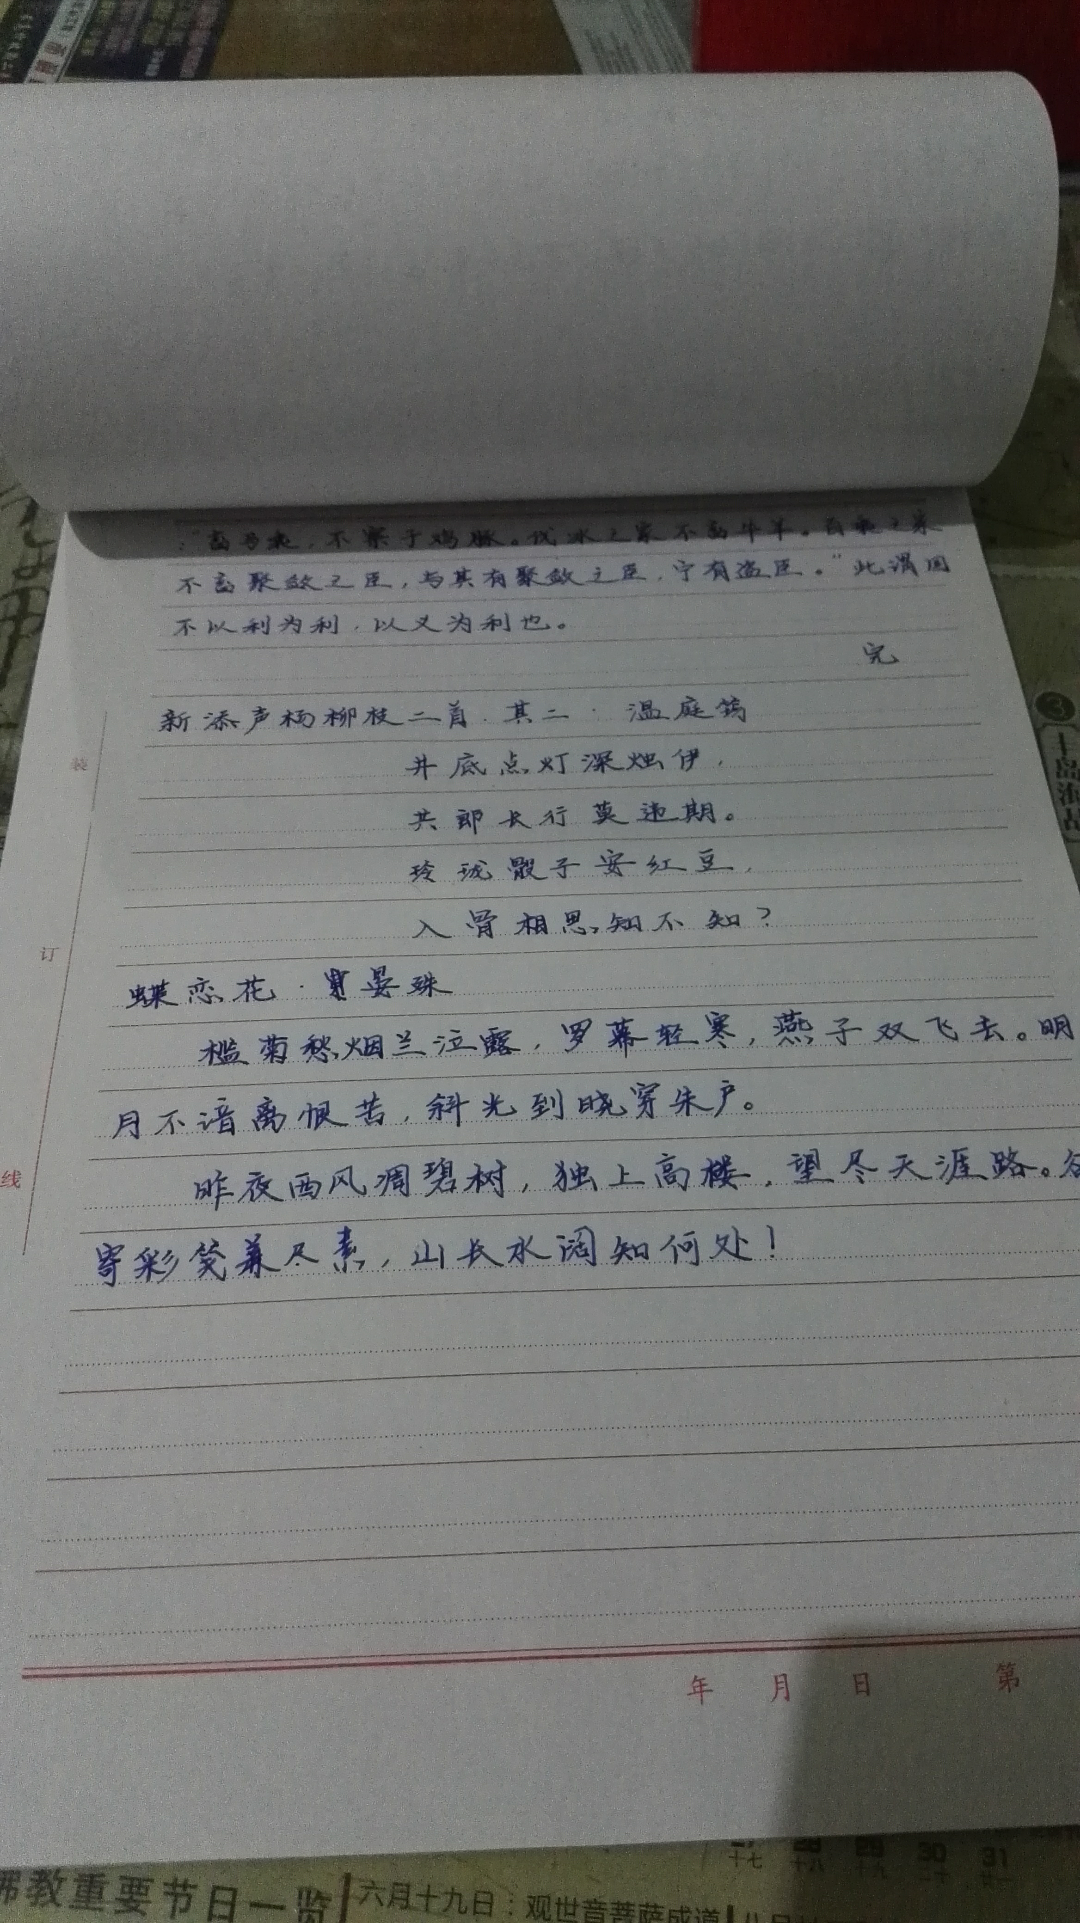 ："畜马乘，不察于鸡豚。伐冰之家不畜牛羊。百乘之家
不畜聚敛之臣，与其有聚敛之臣，宁有盗臣。"此谓国
不以利为利，以义为利也。
完
新添声杨柳枝二首·其二·温庭筠
井底点灯深烛伊，
共郎长行莫违期。
玲珑骰子安红豆，
入骨相思知不知？
蝶恋花·晏殊
槛菊愁烟兰泣露，罗幕轻寒，燕子双飞去。明
月不谙离恨苦，斜光到晓穿朱户。
昨夜西风凋碧树，独上高楼，望尽天涯路。
寄彩笺兼尽素，山长水阔知何处！
装
订
线
年 月 日 第
28 29 30 31
十七 十八 十九 二十 廿一
佛教重要节日一览
六月十九日：观世音菩萨成道
3